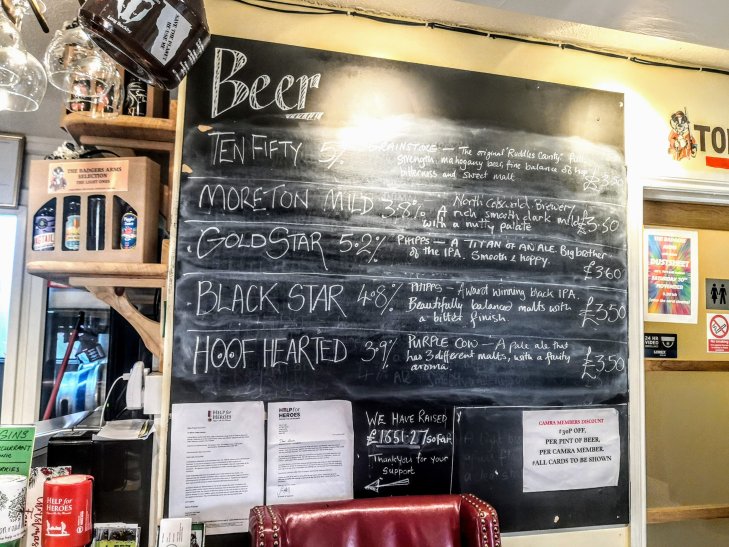 Beer
TEN FIFTY 5% GRAINSTORE – The original 'Ruddles County' Full
strength, mahogany beer, fine balance of Hop
bitterness and sweet malt
MORETON MILD 3.8% North Cotswold Brewery
A rich smooth dark mild
with a nutty palate
£3.60
GOLD STAR 5.2% PHIPPS – A TITAN OF AN ALE. Big brother
of the IPA. Smooth & hoppy.
£3.60
BLACK STAR 4.8% PHIPPS – Award winning black IPA.
Beautifully balanced malts with
a bitter finish
£3.50
HOOF HEARTED 3.9% PURPLE COW – A pale ale that
has 3 different malts, with a fruity
aroma.
£3.50
WE HAVE RAISED
£1651.27 so far
Thankyou for your
support
CAMRA MEMBERS DISCOUNT
PER PINT OF BEER,
PER CAMRA MEMBER.
CARDS TO BE SHOWN
HELP for
HEROES
HELP for
HEROES
THE BADGERS ARMS
SELECTION
THE LIGHT ONES
SAVE THE PLANET
TO
24 HR
VIDEO
GINS
Help for
HEROES